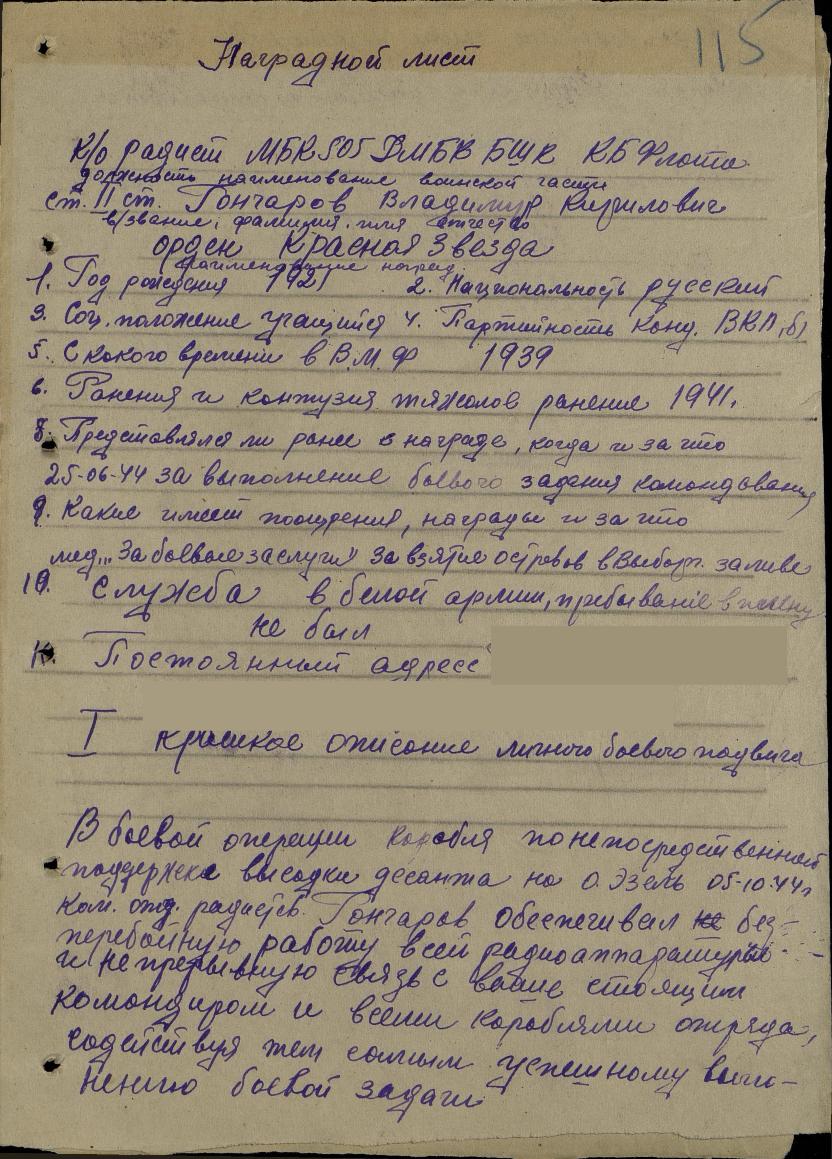 115
Наградной лист
к/о радист МБК 505 ДМБК БШК КБ Флота
должность наименование воинской части
ст. II ст. Гончаров Владимир Кирилович
в/звание, фамилия, имя отчество
орден Красная Звезда
наименование наград
1. Год рождения 1921 2. Национальность русский
3. Соц. положение учащийся 4. Партийность Канд. ВКП(б)
5. С какого времени в В.М.Ф 1939
6. Ранения и контузия тяжолое ранение 1941.
8. Представлялся ли ранее к награде, когда и за что
25-06-44 за выполнение боевого задения командования
9. Какие имеет поощрения, награды и за что
мед. „За боевые заслуги" за взятие островов в Выборг. заливе
10. Служба в белой армии, пребывание в плену
не был
11. Постоянный адресс
I краткое описание личного боевого подвига
В боевой операции корабля по непосредственной
поддержке высадки десанта на О. Эзель 05-10-44г
ком. отд. радистов Гончаров обеспечивал без-
перебойную работу всей радиоаппаратуры
и непрерывную связь с выше стоящим
командиром и всеми кораблями отряда,
содействуя тем самым успешному выпо-
нению боевой задачи